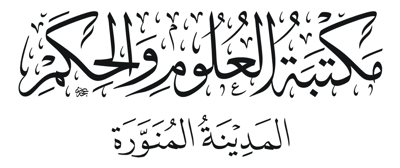 مَكتَبَةُ العُلُومِ وَالحِكَمِ
المَدِيْنَةُ المُنَوَّرَة